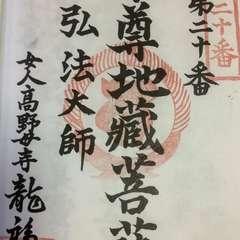 二十番
第二十番
尊地藏菩
弘法大師
女人高野 寺 龍